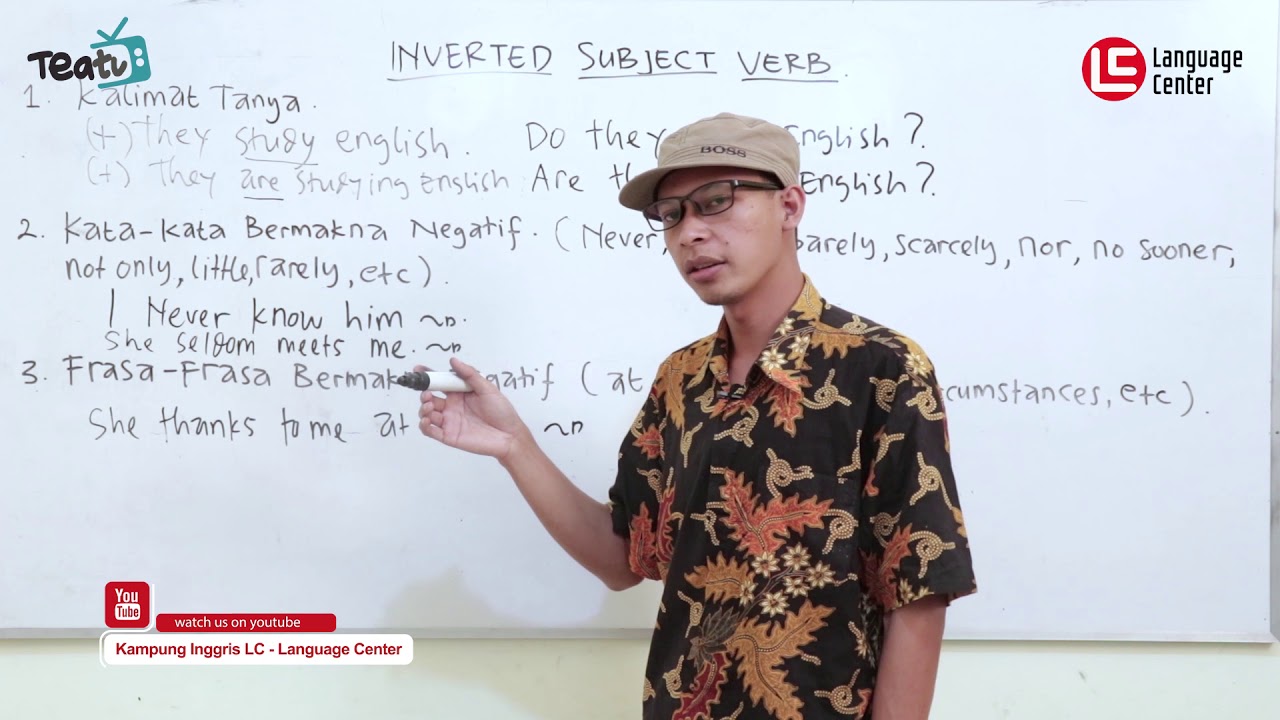 Teatv
LC Language
Center
INVERTED SUBJECT VERB.
1. Kalimat Tanya.
(+) They study english. Do they English?
(+) They are studying English Are English?
2. Kata-kata Bermakna Negatif. (Never, barely, scarcely, nor, no sooner,
not only, little, rarely, etc).
I Never know him ~D.
She seldom meets me. ~D
3. Frasa-Frasa (at etc).
She thanks to me at ~D
BOSS
You
Tube
watch us on youtube
Kampung Inggris LC - Language Center